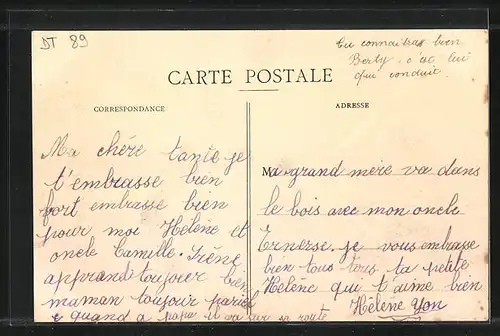 DT 89
tu connaitras bien
Berty. c'ec lui
qui conduit.
CARTE POSTALE
CORRESPONDANCE
ADRESSE
Ma chére tante je
t'embrasse bien
fort embrasse bien
pour moi Hélène et
oncle Camille. Irène
apprand toujour bien
maman toujour pariel
quand a papa il va sur sa route
Ma grand mère va dans
le bois avec mon oncle
Ernerse. je vous embrasse
bien tous tous ta petite
Hélène qui t'aime bien
Hélène Yon